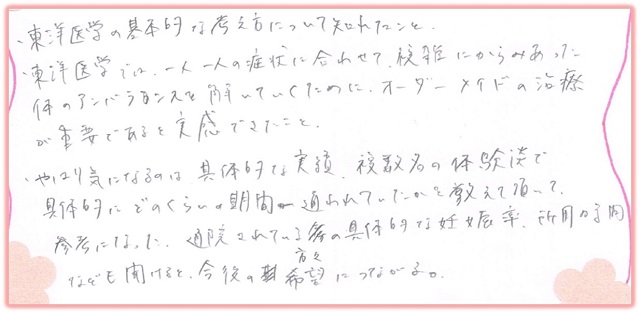 ・東洋医学の基本的な考え方について知れたこと。
・東洋医学では、一人一人の症状に合わせて、複雑にからみあった
体のアンバランスを解いていくために、オーダーメイドの治療
が重要であると実感できたこと。
・やはり気になるのは具体的な実績、複数名の体験談で
具体的にどのくらいの期間通われていたかを教えて頂いて、
参考になった。通院されている方々の具体的な妊娠率、所用時間
なども聞けると、今後の希望につながる。